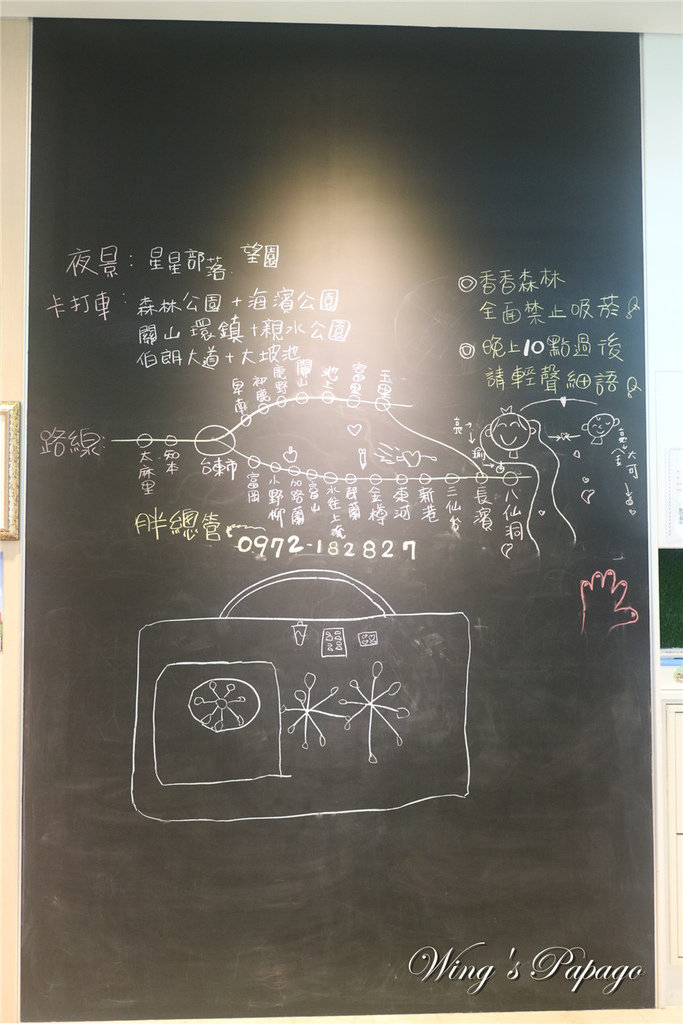 夜景：星星部落 望園
卡打車：森林公園＋海濱公園
關山環鎮＋親水公園
伯朗大道＋大坡池
◎香香森林
全面禁止吸菸
◎晚上10點過後
請輕聲細語
卑南 初鹿 鹿野 關山 池上 富里 玉里
路線：
太麻里 知本 台東市
富岡 小野柳 加路蘭 富山 水往上流 都蘭 金樽 東河 新港 三仙台 長濱 八仙洞
胖總管
0972-182827
Wing's Papago